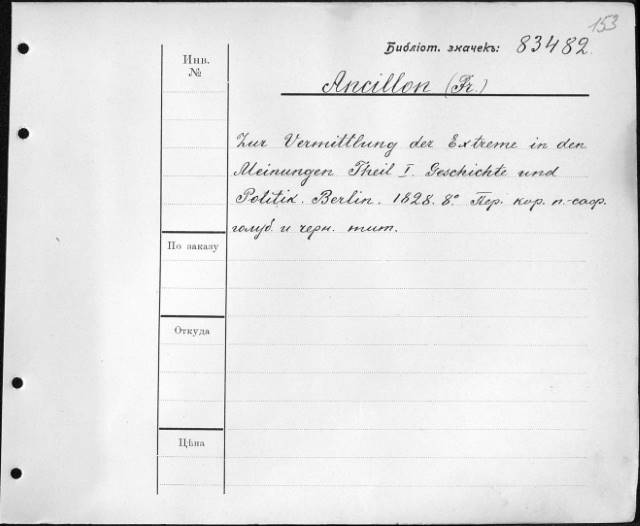 153
Библіот. значекъ: 83482.
Инв.
№
Ancillon (Fr.)
Zur Vermittlung der Extreme in den
Meinungen Theil I. Geschichte und
Politik. Berlin. 1828. 8º Пер. кор. п.-саф.
голуб. и черн. тит.
По заказу
Откуда
Цѣна